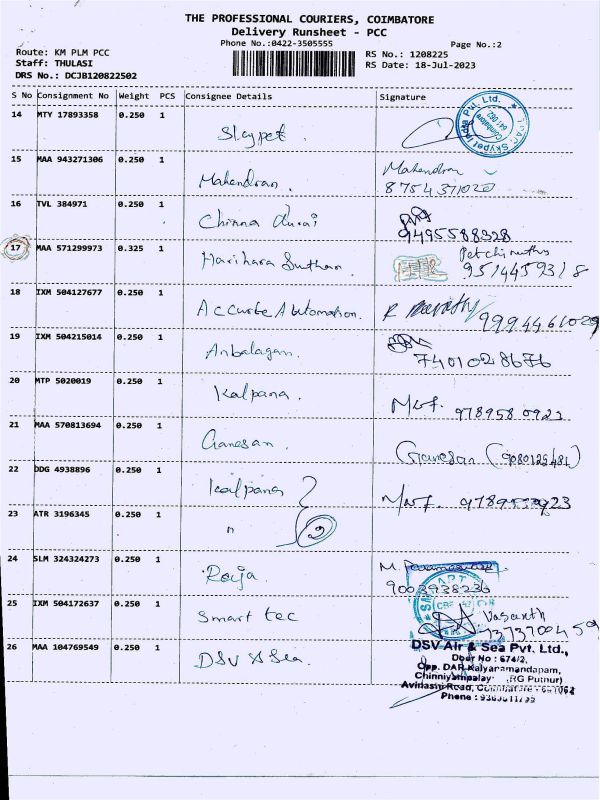 THE PROFESSIONAL COURIERS, COIMBATORE
Delivery Runsheet - PCC
Phone No.:0422-3505555 Page No.:2
Route: KM PLM PCC RS No.: 1208225
Staff: THULASI RS Date: 18-Jul-2023
DRS No.: DCJB120822502
S No Consignment No Weight PCS Consignee Details Signature
14 MTY 17893358 0.250 1
Skypet.
Skypet India Pvt. Ltd.
Coimbatore
641 062
15 MAA 943271306 0.250 1 Mahendran
Mahendran. 8754371020
16 TVL 384971 0.250 1
Chinna durai 9495588328
17 MAA 571299973 0.325 1
Harihara Suthan. 9514459318
18 IXM 504127677 0.250 1
Accurate Automation.
19 IXM 504215014 0.250 1
Anbalagan. 7401028676
20 MTP 5020019 0.250 1
Kalpana. 9789580923
21 MAA 570813694 0.250 1
Ganesan. Ganesan
22 DDG 4938896 0.250 1
Kalpana
23 ATR 3196345 0.250 1
" 2
24 SLM 324324273 0.250 1
Roja. 9003938236
25 IXM 504172637 0.250 1 Vasanth
Smart tec
26 MAA 104769549 0.250 1 DSV Air & Sea Pvt. Ltd.,
DSV & Sea. Door No : 674/2,
Opp. DAR Kalyanamandapam,
Chinniyampalay (RG Puthur)
Avinashi Road, Coimbatore - 641062
Phone :